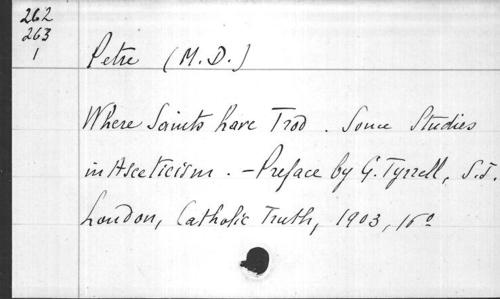 262
263
1
Petre (M.D.)
Where Saints have Trod. Some Studies
in Asceticism. - Preface by G. Tyrrell, S.J.
London, Catholic Truth, 1903, 16º